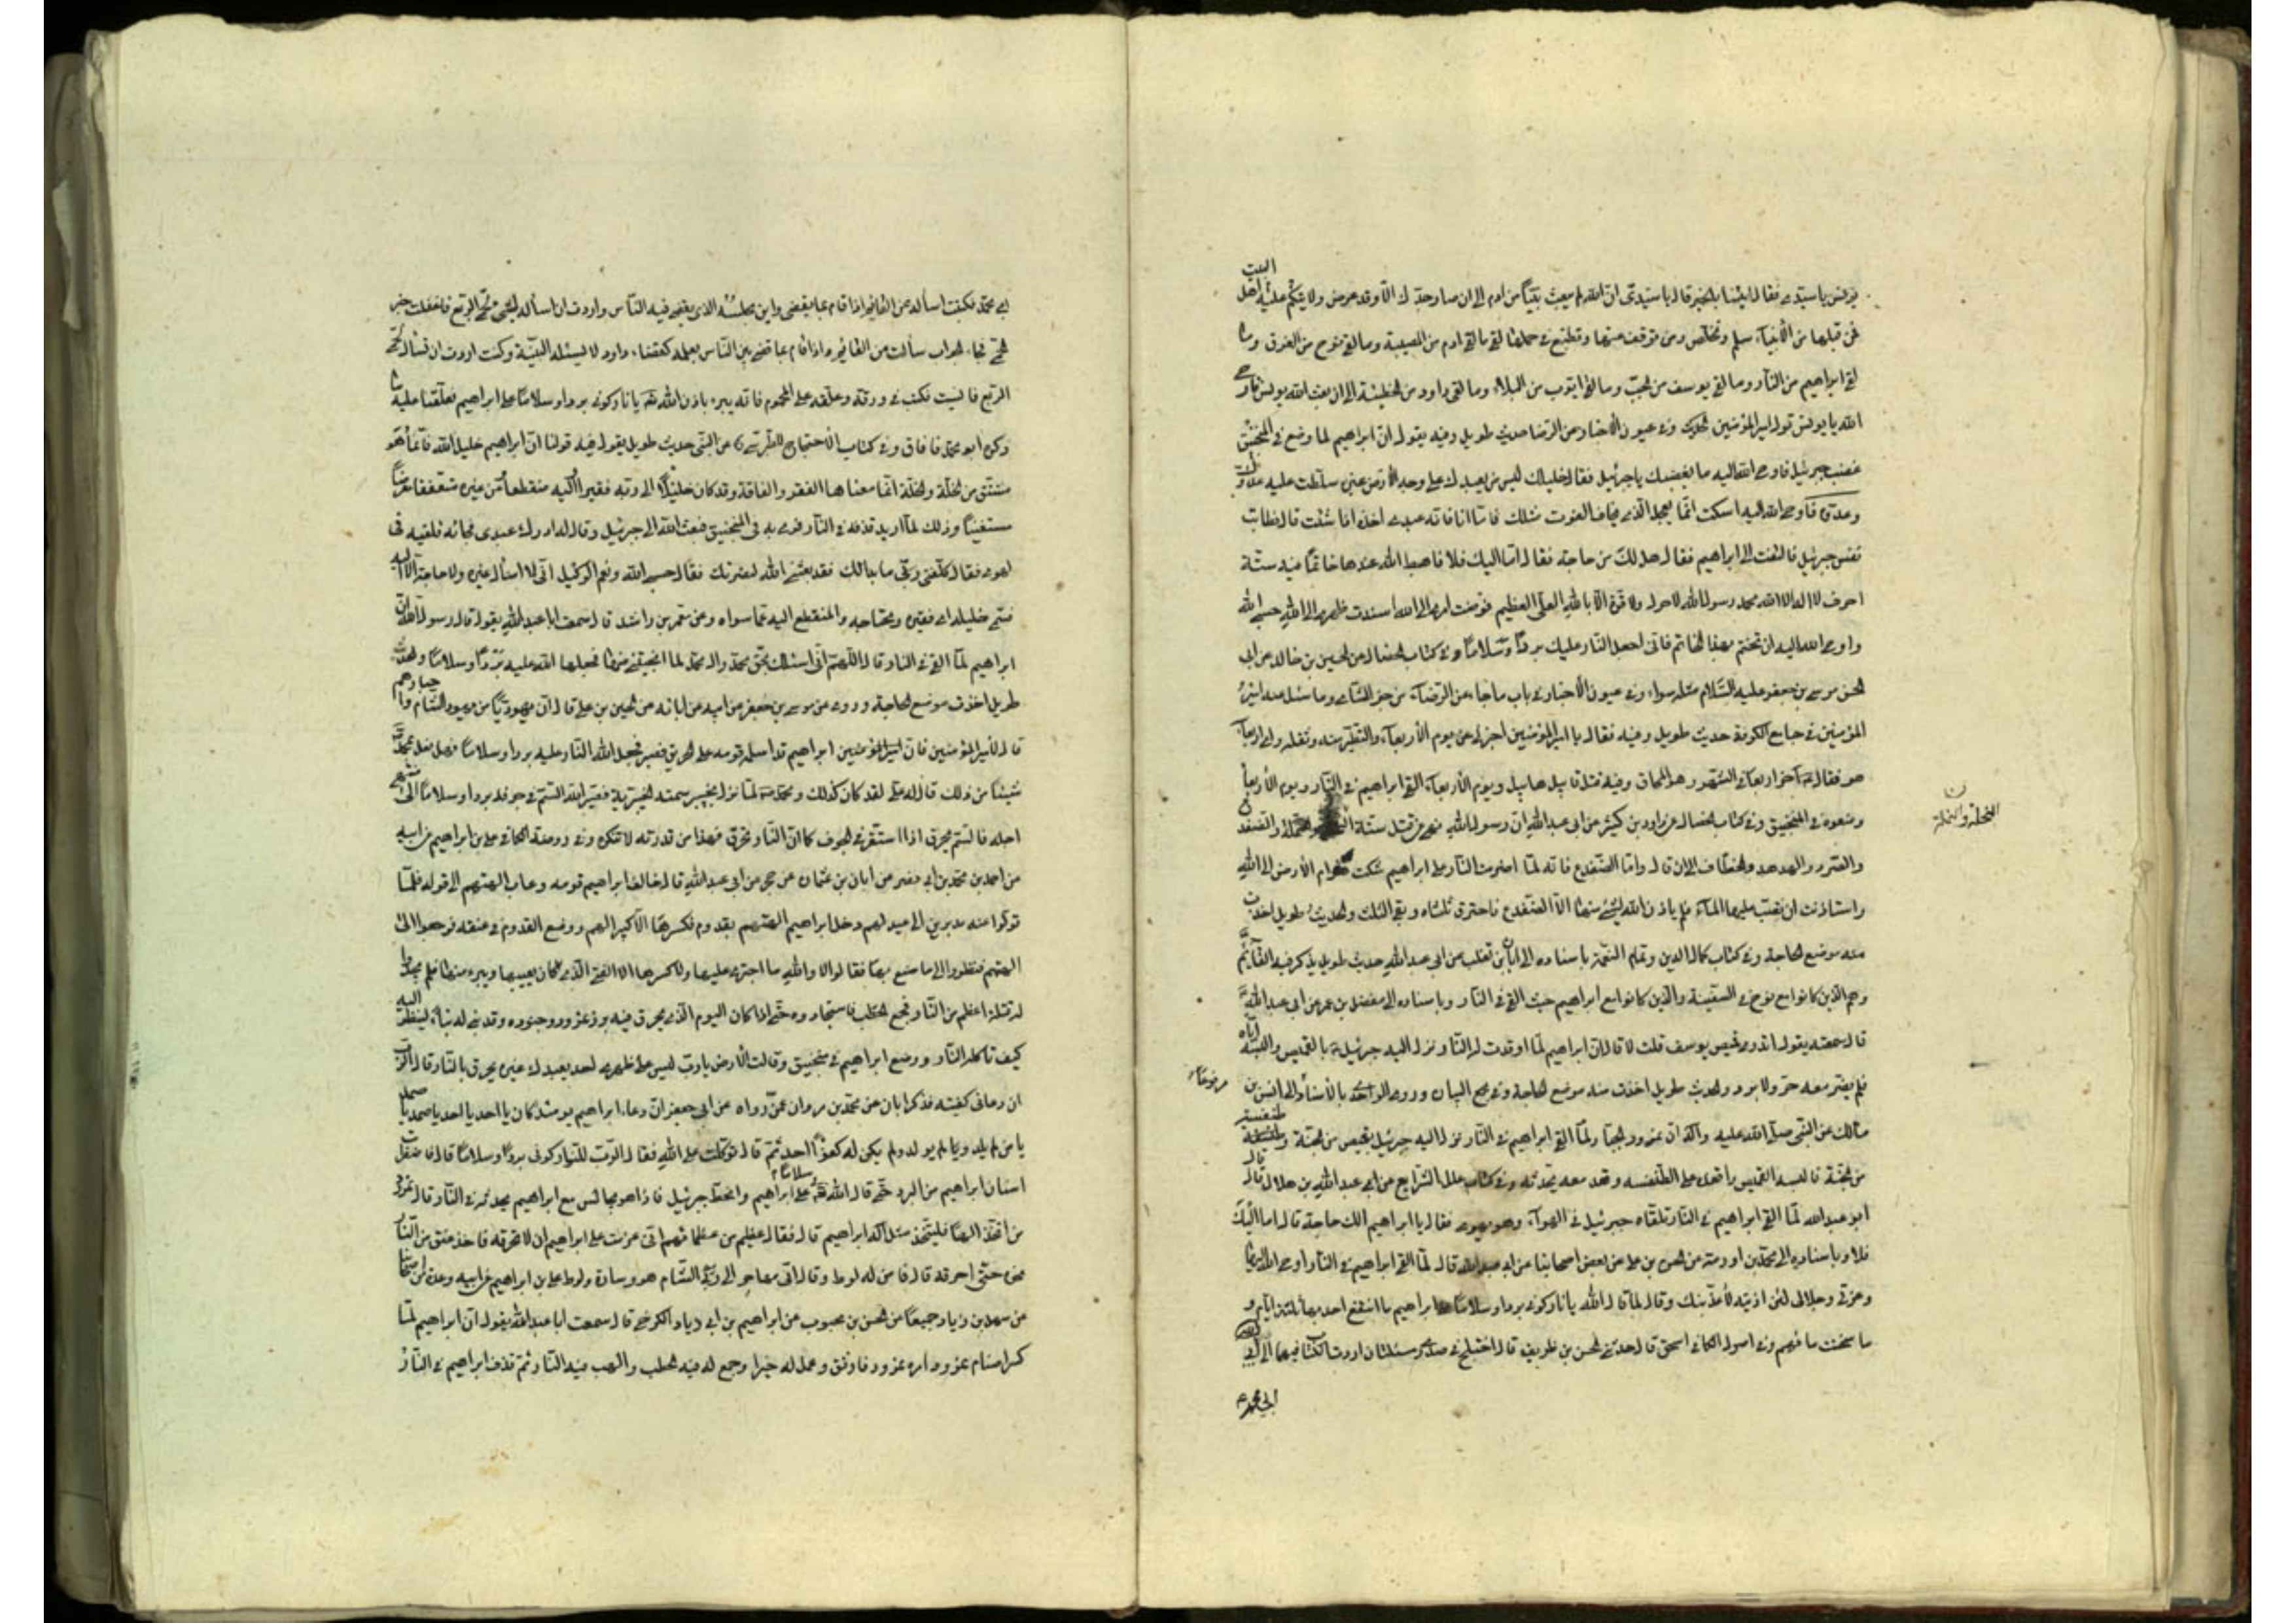 البيت
يونس يا سيدى فقال انبئنا بالخبر قال يا سيدى ان الله لم يبعث نبيا من ادم الى ان صار جدك الا وقد عرض ولايتكم عليه اهل
فمن قبلها من الأنبياء سلم وتخلص ومن توقف عنها وتمنع فى حملها لقى ما لقى ادم من المصيبة وما لقى نوح من الغرق وما
لقى ابراهيم من النار وما لقى يوسف من الجب وما لقى ايوب من البلاء وما لقى داود من الخطيئة الى ان بعث الله يونس فاوحى
الله يا يونس تول امير المؤمنين وفى عيون الأخبار عن الرضا حديث طويل وفيه يقول ان ابراهيم لما وضع فى المنجنيق
غضب جبرئيل فاوحى الله اليه ما يغضبك يا جبرئيل فقال خليلك ليس من يعبدك على وجه الأرض غيره سلطت عليه عدوك
وعدوه فاوحى الله اليه اسكت انما يعجل الذى يخاف الفوت مثلك فاما انا فانه عبدى اخذه اذا شئت قال فطابت
نفس جبرئيل فالتفت الى ابراهيم فقال هل لك من حاجة فقال اما اليك فلا فاهبط الله عندها خاتما فيه ستة
احرف لا اله الا الله محمد رسول الله لا حول ولا قوة الا بالله العلى العظيم فوضت امرى الى الله اسندت ظهرى الى الله حسبى الله
واوحى الله اليه ان تختم بهذا الخاتم فانى اجعل النار عليك بردا وسلاما وفى كتاب الخصال عن الحسين بن خالد عن ابى
الحسن موسى بن جعفر عليه السلام مثله سواء وفى عيون الأخبار فى باب ما جاء عن الرضا من خبر الشامى وما سئل عنه امير
المؤمنين فى جامع الكوفة حديث طويل وفيه فقال يا امير المؤمنين اخبرنى عن يوم الأربعاء والتطير منه وثقله واى اربعاء
هو فقال اخر اربعاء فى الشهر وهو المحاق وفيه قتل قابيل هابيل ويوم الأربعاء القى ابراهيم فى النار ويوم الأربعاء
وضعوه فى المنجنيق وفى كتاب الخصال عن داود بن كثير عن ابى عبد الله ان رسول الله نهى عن قتل ستة والضفدع
النحلة والنملة
والصرد والهدهد والخطاف الى ان قال واما الضفدع فانه لما اضرمت النار على ابراهيم شكت هوام الأرض الى الله
واستاذنت ان تصب عليها الماء فلم ياذن الله لشئ منها الا الضفدع فاحترق ثلثاه وبقى الثلث والحديث طويل اخذت
منه موضع الحاجة وفى كتاب كمال الدين وتمام النعمة باسناده الى ابان بن تغلب عن ابى عبد الله حديث طويل يذكر فيه القائم
وهم الذين كانوا مع نوح فى السفينة والذين كانوا مع ابراهيم حيث القى فى النار وباسناده الى مفضل بن عمر عن ابى عبد الله
قال سمعته يقول اتدرى ما قميص يوسف قلت لا قال ان ابراهيم لما اوقدت له النار نزل اليه جبرئيل بالقميص والبسه اياه
فلم يضر معه حر ولا برد والحديث طويل اخذت منه موضع الحاجة وفى مجمع البيان وروى الواحدى بالأسناد الى انس بن
مرفوعا
مالك عن النبى صلى الله عليه واله ان نمرود الجبار لما القى ابراهيم فى النار نزل اليه جبرئيل بقميص من الجنة وطنفسة
من الجنة فالبسه القميص واقعده على الطنفسه وقعد معه يحدثه وفى كتاب علل الشرايع عن ابى عبد الله بن هلال قال قال
ابو عبد الله لما القى ابراهيم فى النار تلقاه جبرئيل فى الهواء وهو يهوى فقال يا ابراهيم الك حاجة قال اما اليك
فلا وباسناده الى محمد بن اورمة عن الحسن بن على عن بعض اصحابنا عن ابى عبد الله قال لما القى ابراهيم فى النار اوحى الله اليها
وعزتى وجلالى لئن اذيته لأعذبنك وقال لما قال الله يا نار كونى بردا وسلاما على ابراهيم ما انتفع احد بها ثلثة ايام و
ما سخنت ماءهم وفى اصول الكافى اسحق قال حدثنى الحسن بن ظريف قال اختلج فى صدرى مسئلتان اردت الكتاب فيهما الى
ابى محمد
ابى محمد فكتبت اسأله عن القائم اذا قام بما يقضى واين مجلسه الذى يقضى فيه بين الناس واردت ان اسأله لشئ لحمى الربع فاغفلت خبر
الحمى فجاء الجواب سألت عن القائم واذا قام قضى بين الناس بعلمه كقضاء داود لا يسئل البينة وكنت اردت ان تسأل لحمى
الربع فانسيت فاكتب فى ورقة وعلقه على المحموم فانه يبرء باذن الله يا نار كونى بردا وسلاما على ابراهيم فعلقنا عليه ما
ذكر ابو محمد فافاق وفى كتاب الاحتجاج للطبرسى عن النبى حديث طويل يقول فيه قولنا ان ابراهيم خليل الله فانما هو
مشتق من الخلة والخلة انما معناها الفقر والفاقة وقد كان خليلا الى ربه فقيرا اليه منقطعا عن غيره متعففا معرضا
مستغنيا وذلك لما اريد قذفه فى النار فرمى به فى المنجنيق فبعث الله الى جبرئيل وقال له ادرك عبدى فجاءه فلقيه فى
الهوى فقال كلفنى ما بدالك فقد بعثنى الله لنصرتك فقال حسبى الله ونعم الوكيل انى لا اسأل غيره ولا حاجة الا اليه
فسمى خليله اى فقيره ومحتاجه والمنقطع اليه عما سواه وعن معمر بن راشد قال سمعت ابا عبد الله يقول قال رسول الله ان
ابراهيم لما القى فى النار قال اللهم انى اسئلك بحق محمد وال محمد لما انجيتنى منها فجعلها الله عليه بردا وسلاما والحديث
طويل اخذت موضع الحاجة وروى عن موسى بن جعفر عن ابيه عن ابائه عن الحسين بن على قال ان يهوديا من يهود الشام واحبارهم
قال لأمير المؤمنين فان ابراهيم قد اسلمه قومه على الحريق فصبر فجعل الله النار عليه بردا وسلاما فهل فعل بمحمد
شيئا من ذلك قال له على لقد كان كذلك ومحمد لما نزل بخيبر سمته الخيبرية فصير الله السم فى جوفه بردا وسلاما الى منتهى
اجله فالسم يحرق اذا استقر فى الجوف كما ان النار تحرق فهذا من قدرته لا تنكره وفى روضة الكافى على بن ابراهيم عن ابيه
عن احمد بن محمد بن ابى نصر عن ابان بن عثمان عن حجر عن ابى عبد الله قال خالف ابراهيم قومه وعاب الهتهم الى قوله فلما
تولوا عنه مدبرين الى عيد لهم دخل ابراهيم الهتهم بقدوم فكسرها الا كبيرا لهم ووضع القدوم فى عنقه فرجعوا الى
الهتهم فنظروا الى ما صنع بها فقالوا لا والله ما اجترى عليها ولا كسرها الا الفتى الذى كان يعيبها ويبرء منها فلم يجدوا
له قتلة اعظم من النار فجمع له الحطب واستجادوه حتى اذا كان اليوم الذى يحرق فيه برز نمرود وجنوده وقد بنى له بناء لينظر اليه
كيف تاكله النار ووضع ابراهيم فى منجنيق وقالت الأرض يا رب ليس على ظهرى احد يعبدك غيره يحرق بالنار قال الرب
ان دعانى كفيته فذكر ابان عن محمد بن مروان عمن رواه عن ابى جعفر ان دعاء ابراهيم يومئذ كان يا احد يا احد يا صمد يا صمد
يا من لم يلد ولم يولد ولم يكن له كفوا احد ثم قال توكلت على الله فقال الرب للنار كونى بردا وسلاما قال فاضطربت
اسنان ابراهيم من البرد حتى قال الله سلاما على ابراهيم وانحط جبرئيل فاذا هو جالس مع ابراهيم يحدثه فى النار قال نمرود
من اتخذ الها فليتخذ مثل اله ابراهيم قال فقال عظيم من عظمائهم انى عزمت على ابراهيم ان لا تحرقه فاخذ عنق من النار
نحوه حتى احرقه قال فامن له لوط وقال انى مهاجر الى ربى الشام هو وسارة ولوط على بن ابراهيم عن ابيه وعدة من اصحابنا
عن سهل بن زياد جميعا عن الحسن بن محبوب عن ابراهيم بن ابى زياد الكرخى قال سمعت ابا عبد الله يقول ان ابراهيم لما
كسر اصنام نمرود امر به نمرود فاوثق وعمل له حيرا وجمع له فيه الحطب والهب فيه النار ثم قذف ابراهيم فى النار